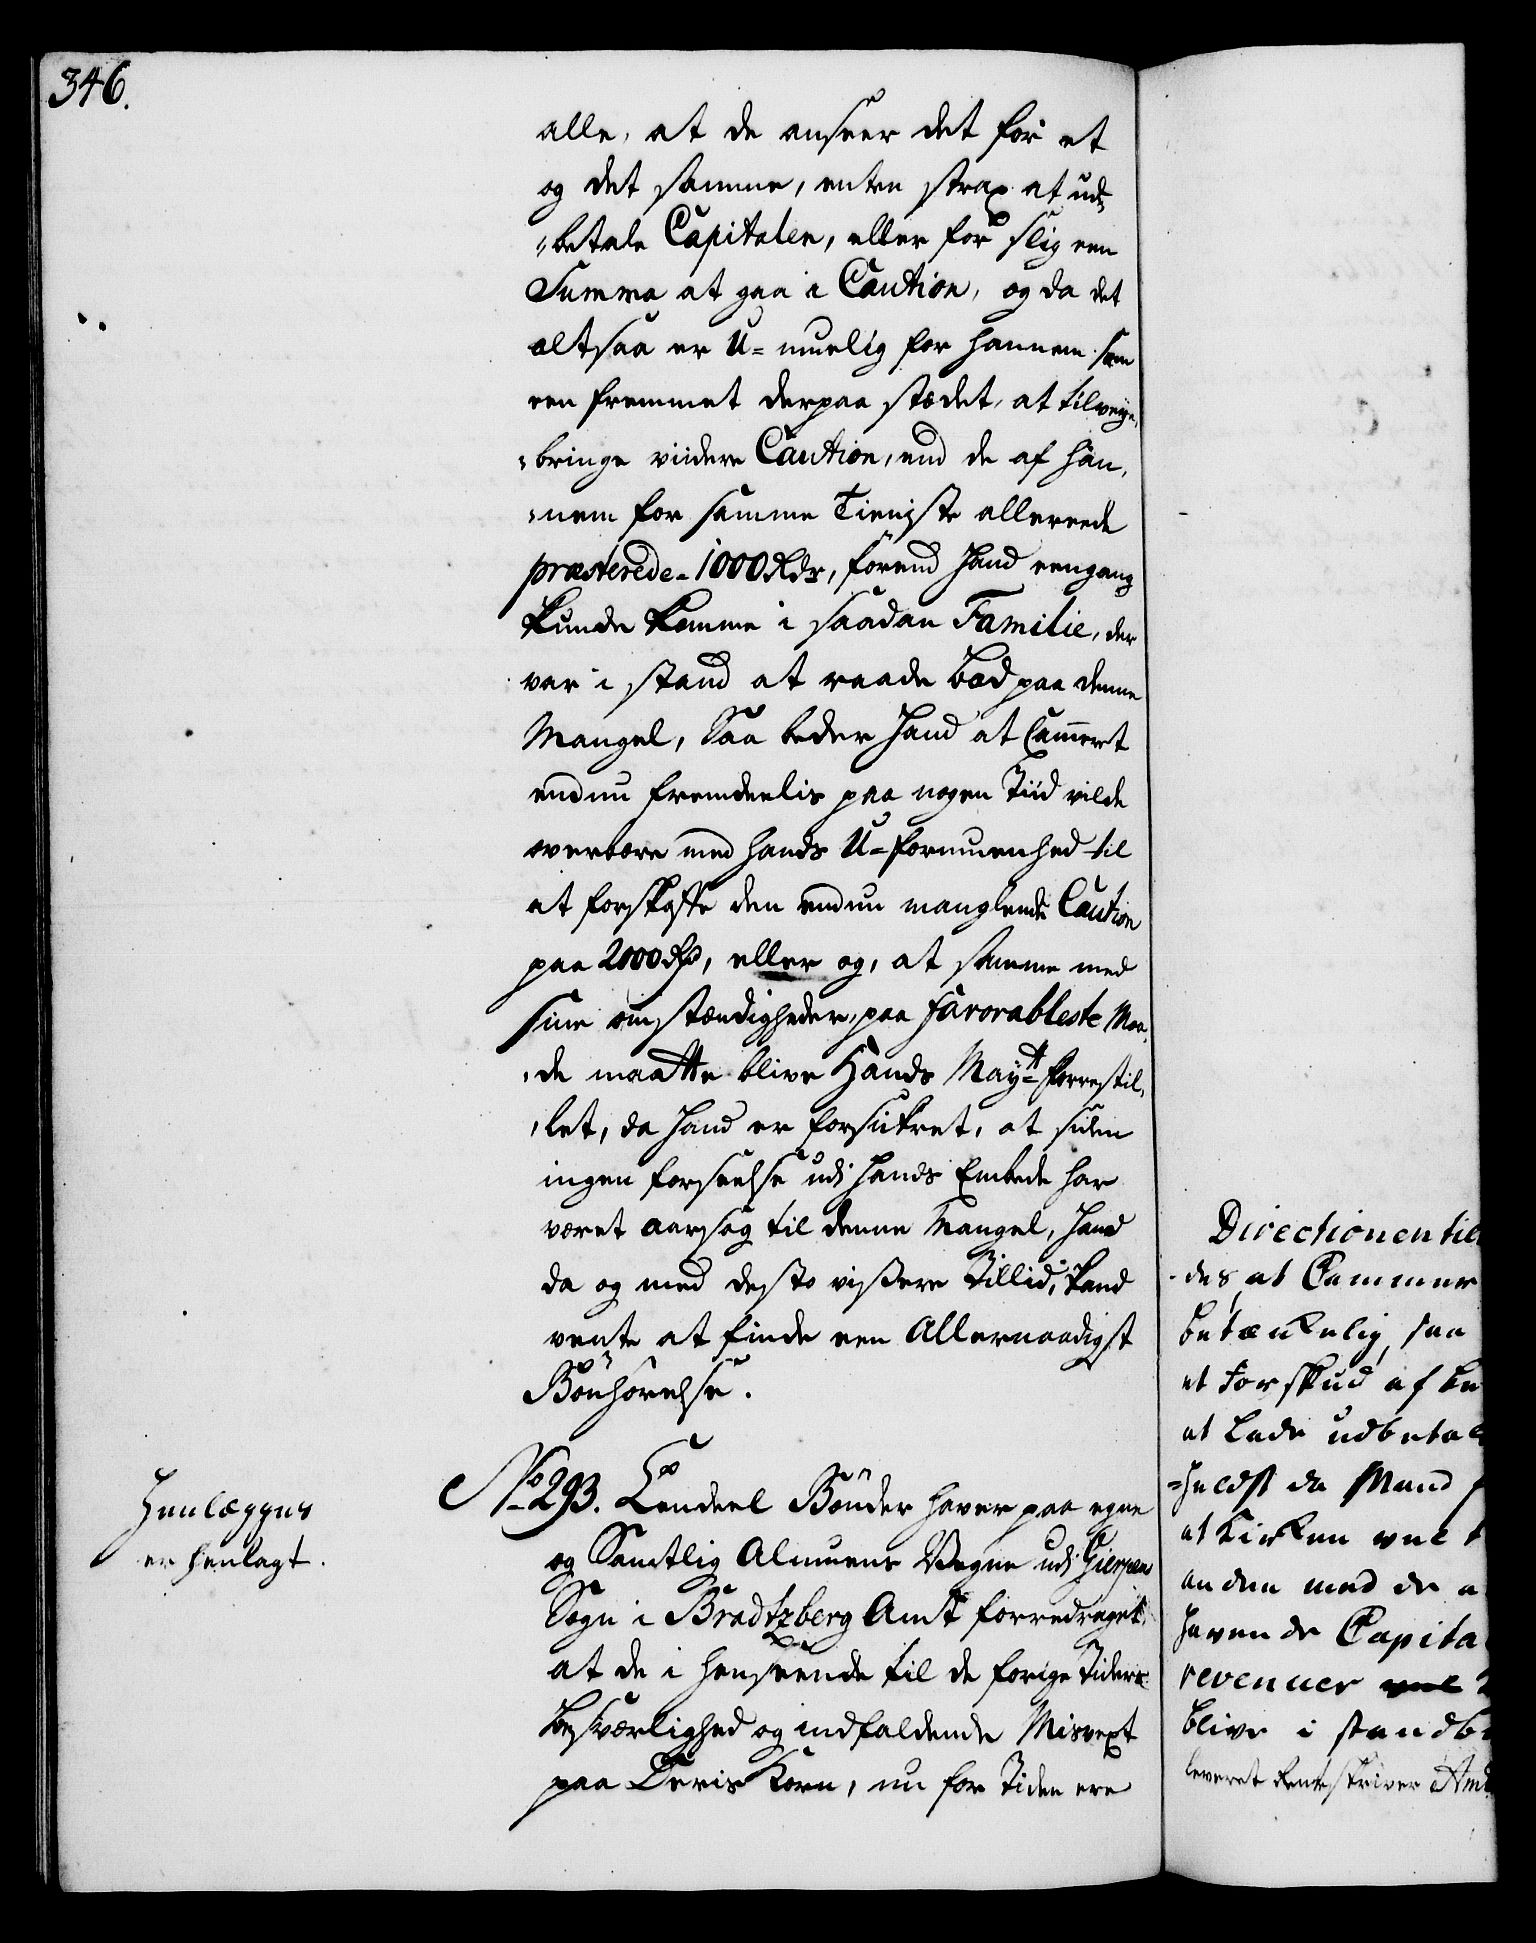 346.
alle, at de anseer det for et
og det samme, enten strax at ud,,
,,betale Capitalen, eller for slig een
Summa at gaa i Caution, og da det
altsaa er U=muelig for hannem som
een fremmet derpaa stædet, at tilveye,
,bringe viidere Caution, end de af han,
,nem for samme Tieniste allereede
præsterede - 1000 Rdr, förend Hand eengang
kunde komme i saadan Familie, der
var i stand at raade bod paa denne
Mangel, Saa beder Hand at Cam̄eret
endnu fremdeelis paa nogen Tiid vilde
overbære med hands U=formuenhed til
at forskaffe den endnu manglende Caution
paa 2000 Rd, eller og, at samme med
sine omstændigheder, paa favorableste Maa,
,de maatte blive Hands Mayt forrestil,
,let, da Hand er forsickret, at siden
ingen forseelse udi hands Embede har
været aarsag til denne Mangel, Hand
da og med desto vissere Tillid, kand
vente at finde een Allernaadigst
Bönhörelse.
Henlægges
er henlagt.
No 293. Lendeel Bönder haver paa egne
og Samtlig Almuens Vegne udi Gierpens
Sogn i Bradtzberg Amt forredraget,
at de i henseende til de forige Tiders
besværlighed og indfaldende Misvext
paa Deris Korn, nu for Tiden ere
Directionen til
-des, at Cammer
betænkelig, saa
et Forskud af be
at lade udbetal
=heldst da Mand
at Kirken vel
anden med de a
havende Capita
revenuer
blive i standb
leveret Rentskriver Amb